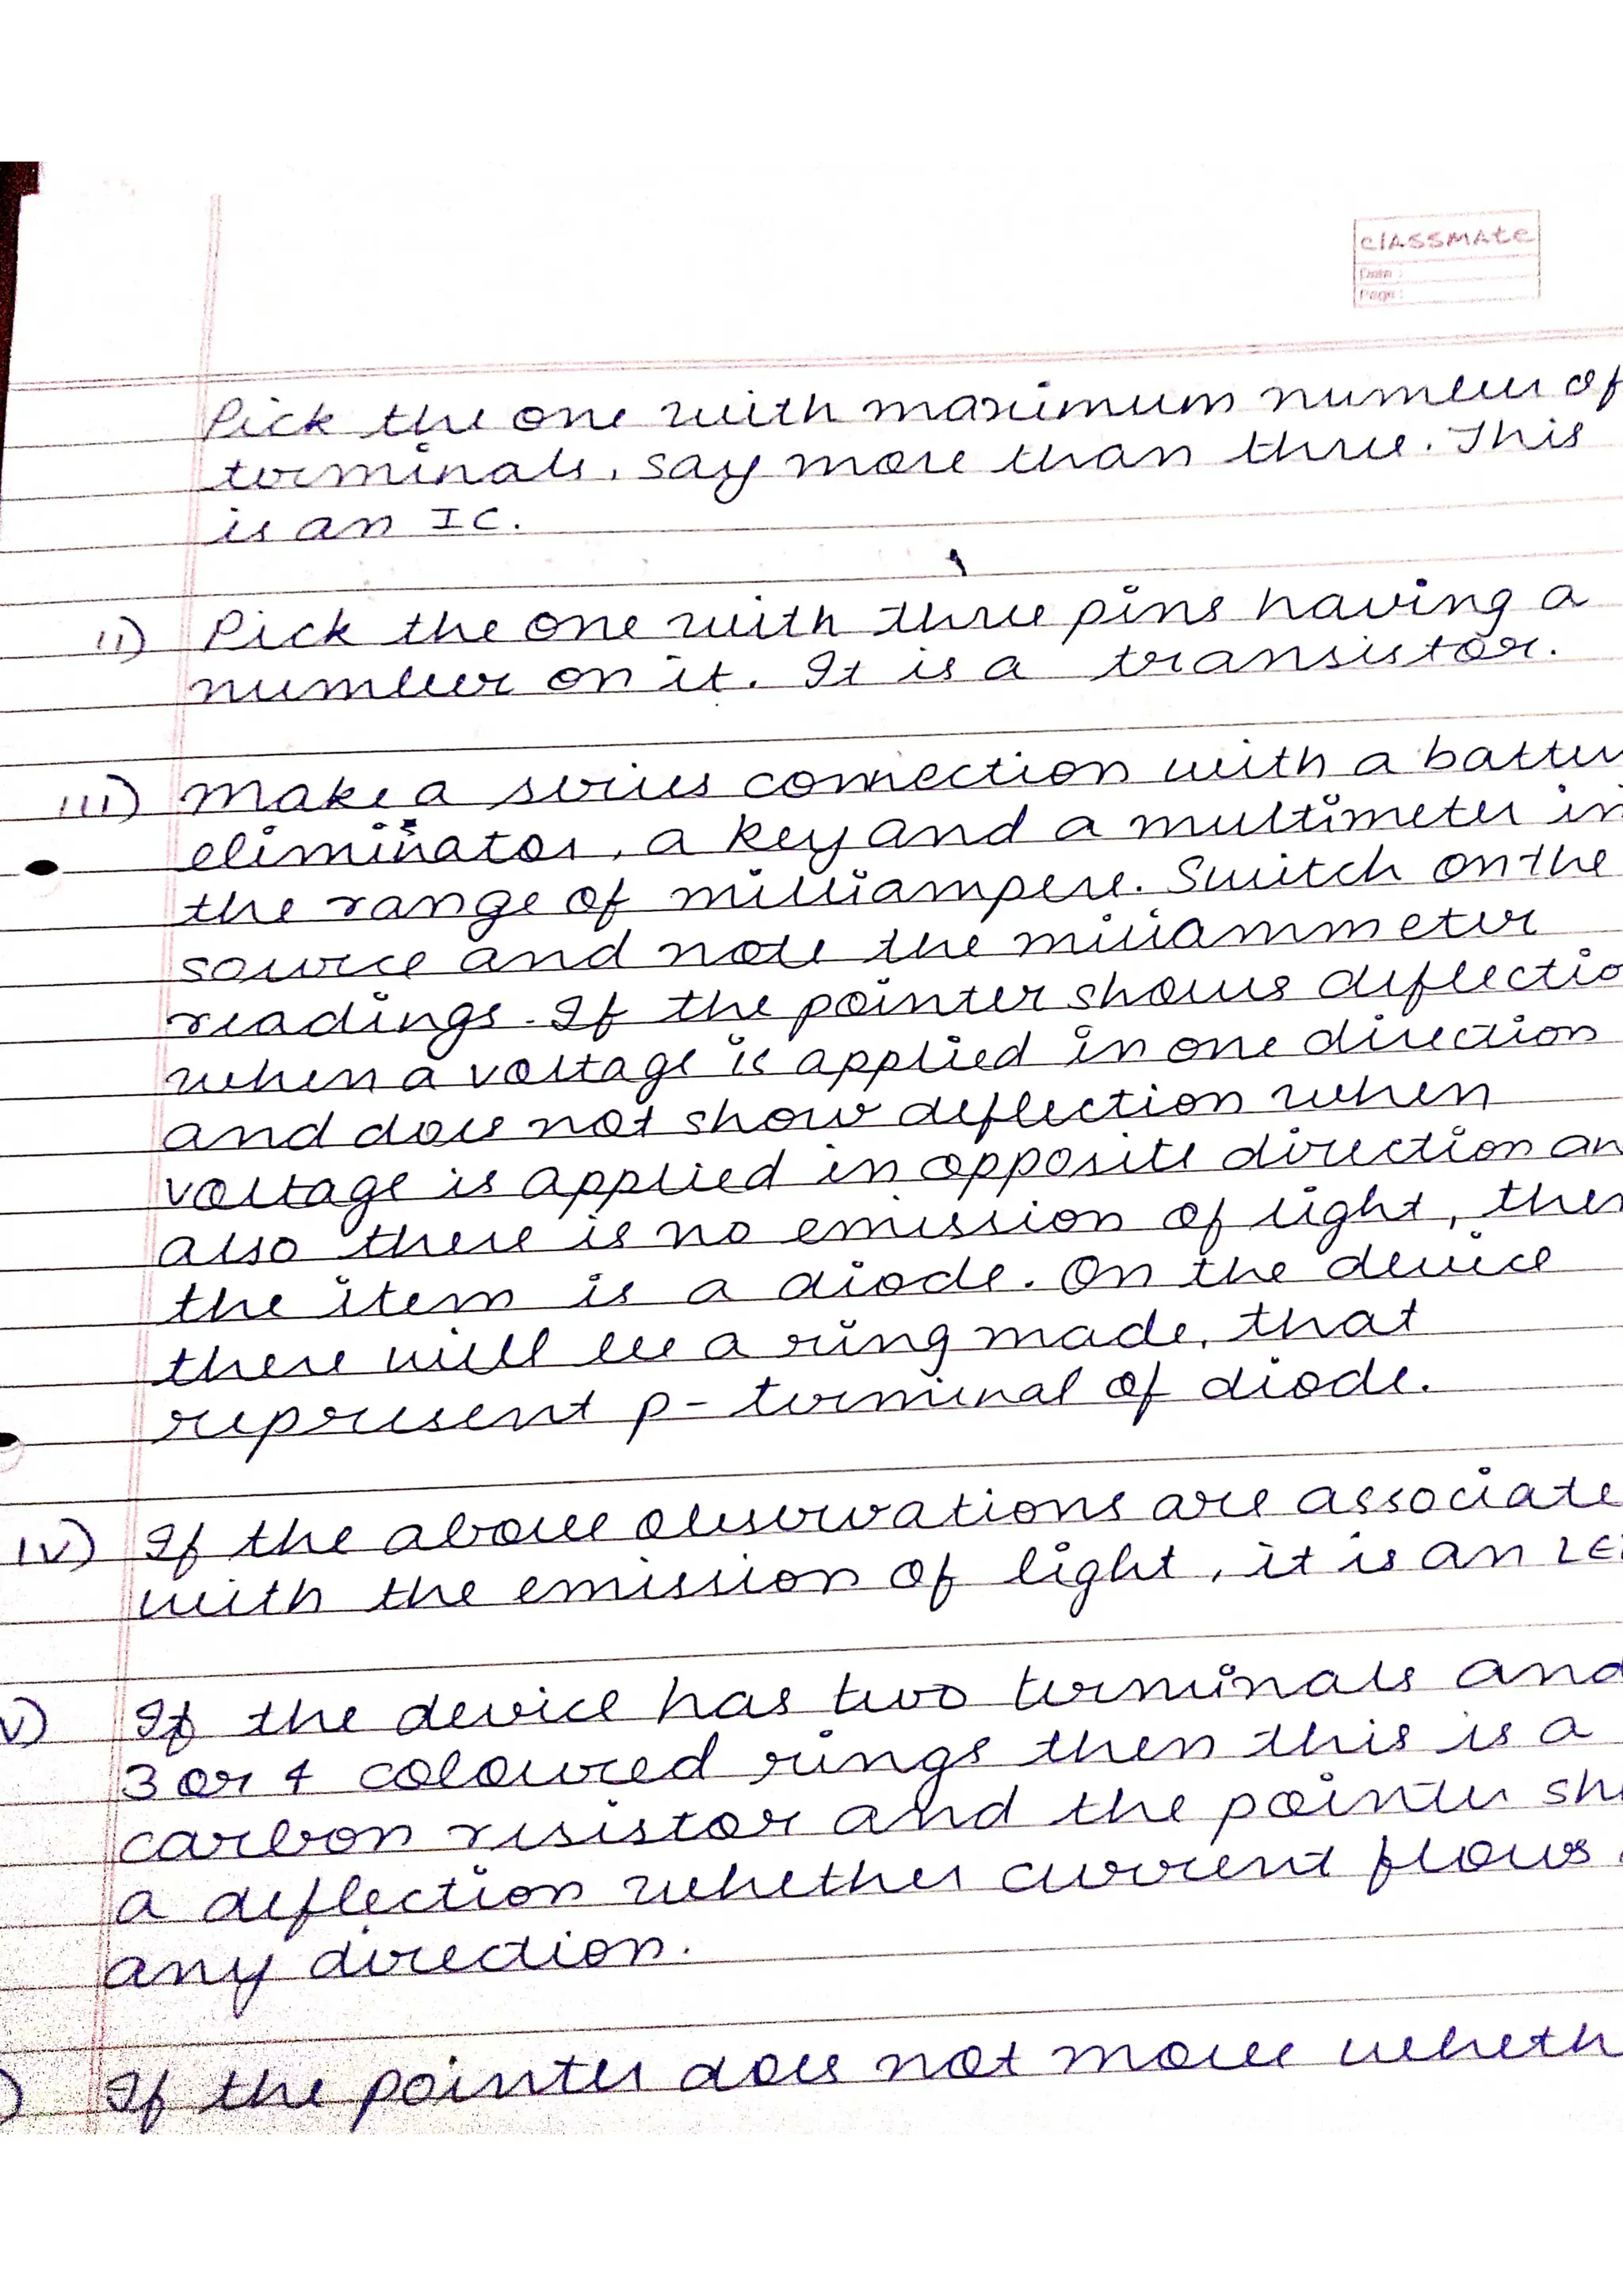 classmate
Date :
Page :
Pick the one with maximum number of
terminals, say more than three. This
is an IC.
ii) Pick the one with three pins having a
number on it. It is a transistor.
iii) Make a series connection with a batte
eliminator, a key and a multimeter in
the range of milliampere. Switch on the
source and note the milliammeter
readings. If the pointer shows deflectio
when a voltage is applied in one direction
and does not show deflection when
voltage is applied in opposite direction an
also there is no emission of light, then
the item is a diode. On the device
there will be a ring made, that
represent p- terminal of diode.
iv) If the above observations are associate
with the emission of light, it is an LE
v) If the device has two terminals and
3 or 4 coloured rings then this is a
carbon resistor and the pointer sh
a deflection whether current flows
any direction.
) If the pointer does not move wheth